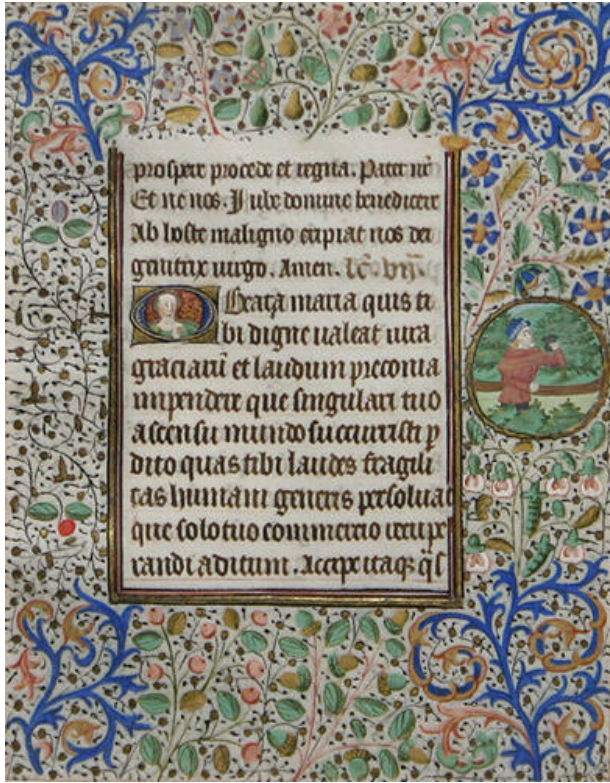 prospere procede et regna. Pater nr̄
Et ne nos. Iube domine benedicere
Ab hoste maligno eripiat nos dei
genitrix uirgo. Amen. lc̄o viij.
O Beata maria quis ti
bi digne ualeat iura
graciarū et laudum preconia
inpendere que singulari tuo
ascensu mundo succurristi p
dito quas tibi laudes fragili
tas humani generis persoluat
que solo tuo commercio recupe
randi aditum. Accipe itaqꝫ q̄s